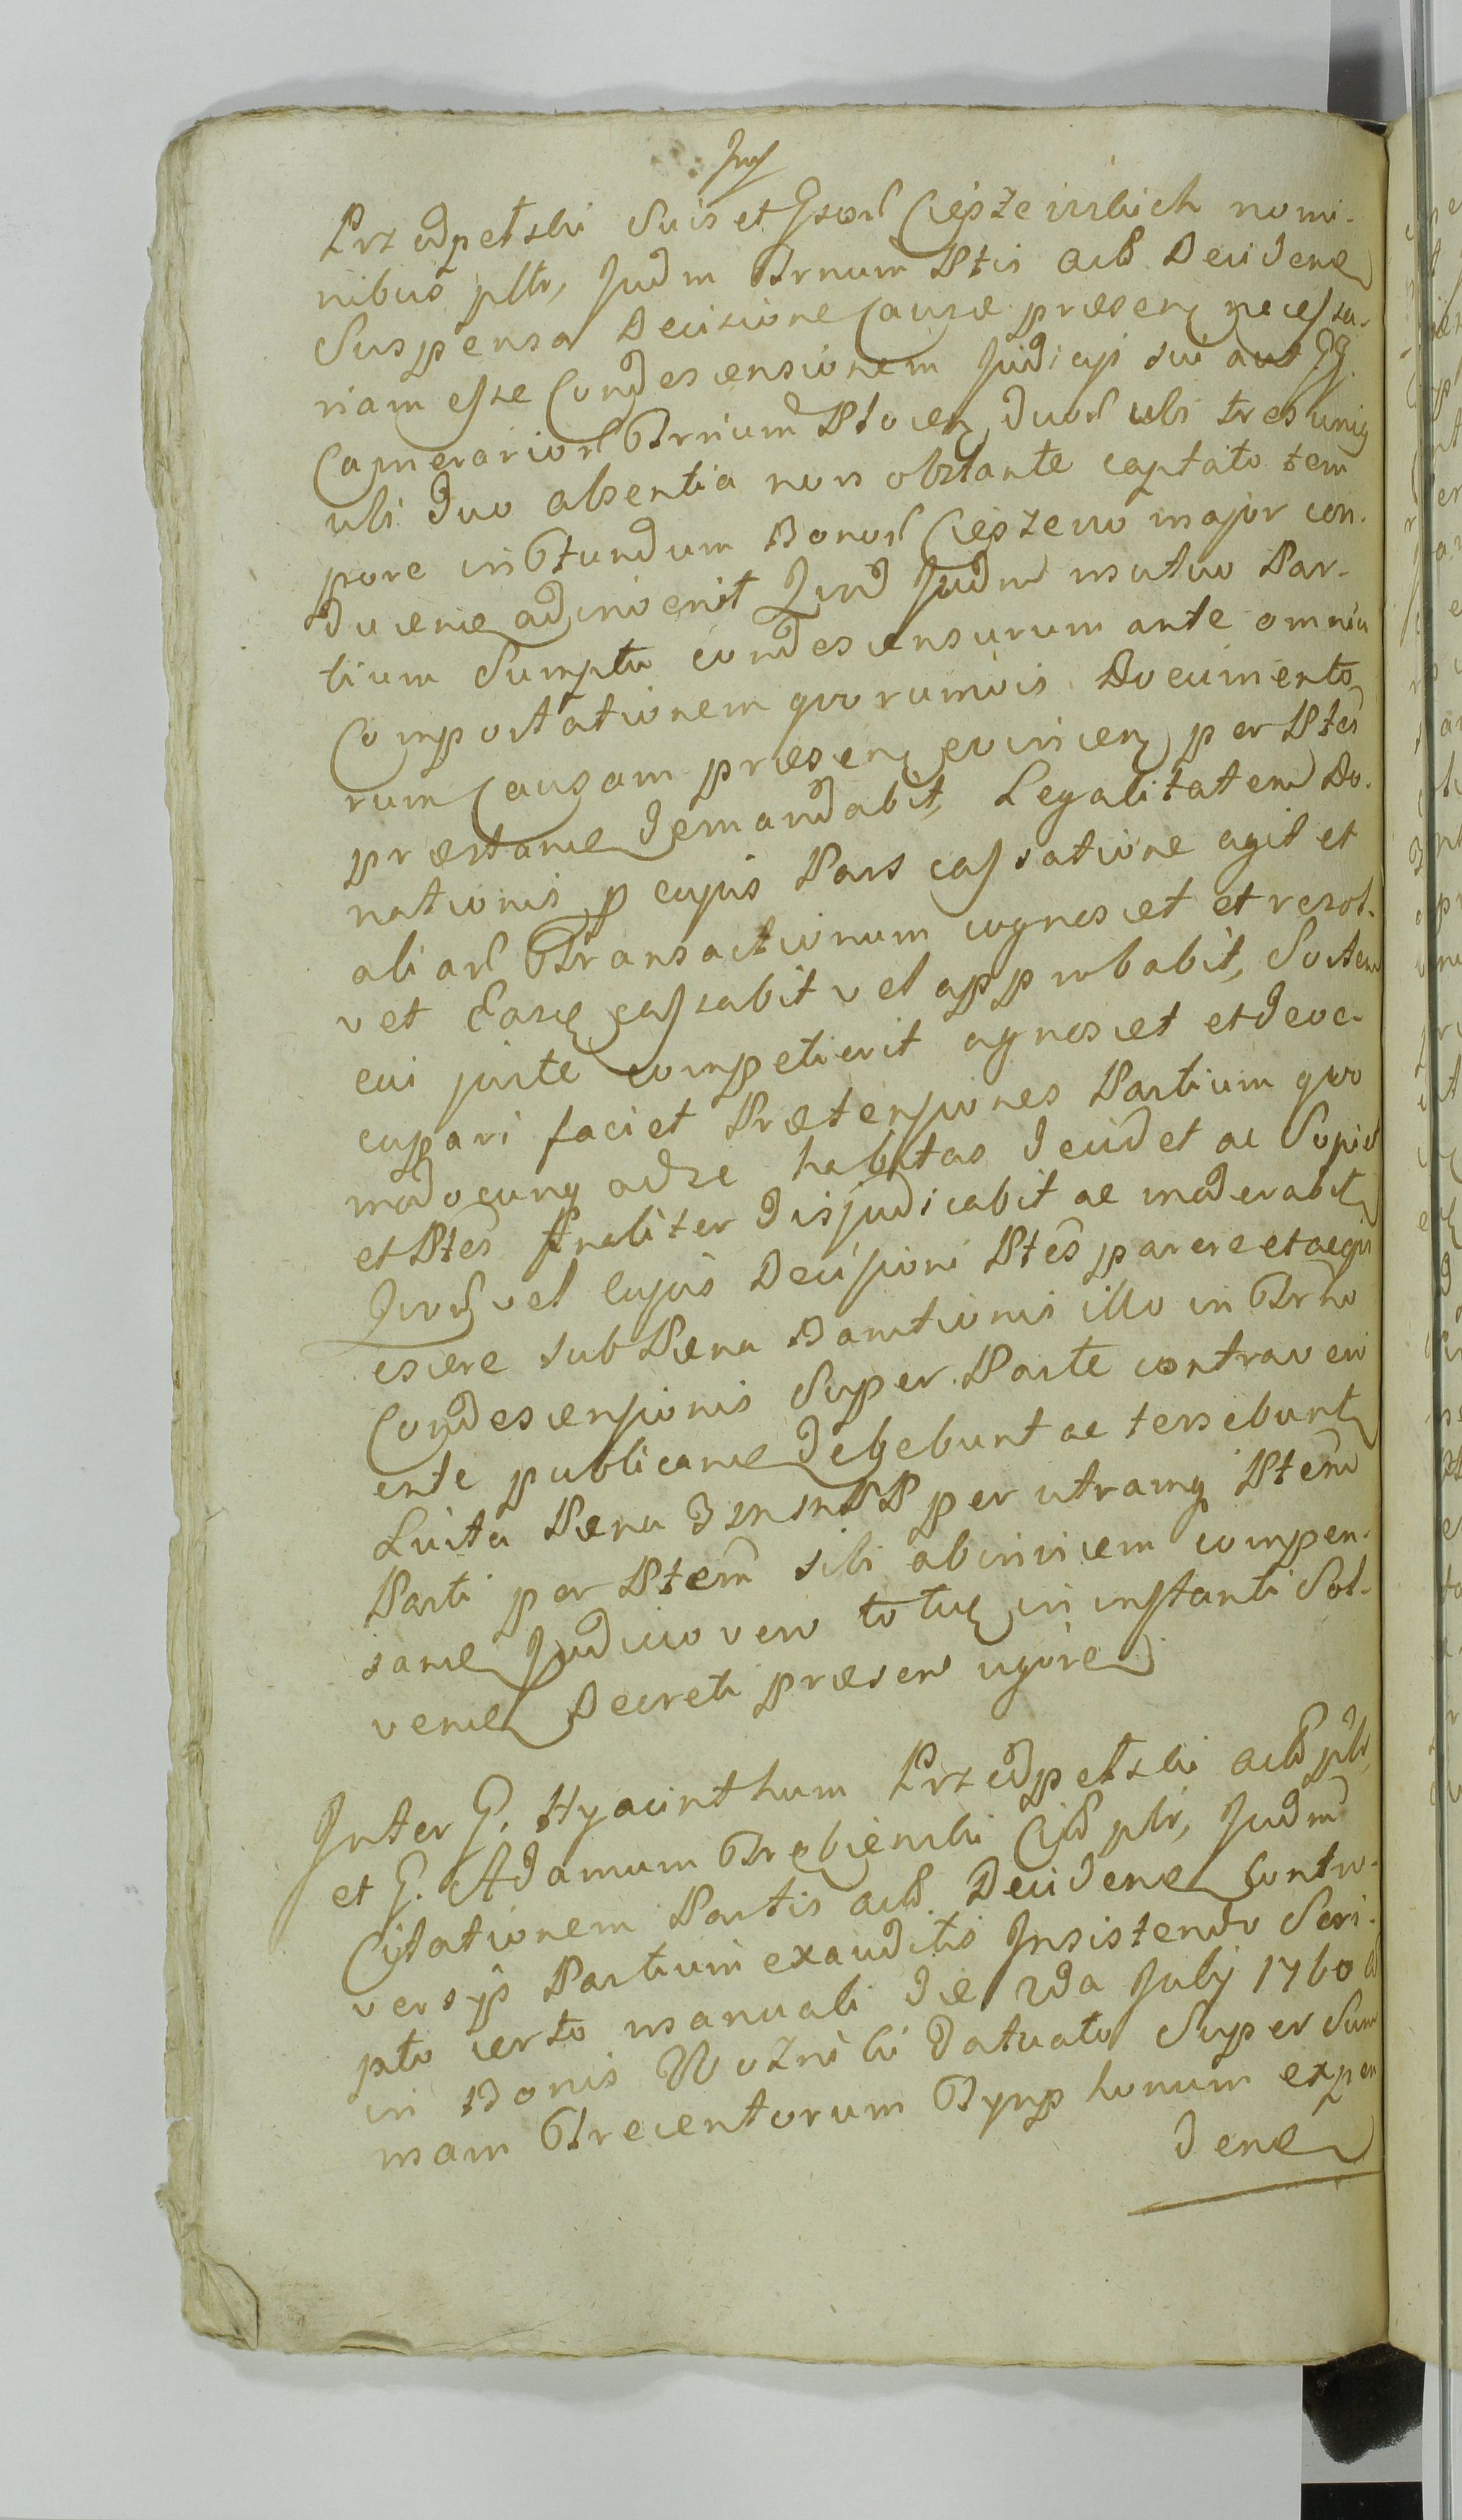 Przedpetski Suis et Gsor Cieszewskich nomi-
nibus pltr, Judm Trnum Ptis actd Decidene
Suspensa Decisione Causæ præsen necessa-
riam esse Condescensionem Judicij sui aut GG.
Camerarior Trrium Plocen duor ubi tres unig
ubi duo absentia non obstante captato tem
pore in Fundum Bonor Cieszewo major con-
ducene adinvenit Quod Judm mutuo Par-
tium Sumptu condescensurum ante omnia
Comportationem quorumvis Documento
rum Causam præsen evincen per Ptes
præstanæ demandabit, Legalitatem Do-
nationis p cujus Pars cassatione agit et
aliar Transactionum cognoscet et resol-
vet Easq cassabit vel approbabit, Sortem
cui juste competierit agnoscet et deoc-
cupari faciet Prætensiones Partium quo
modocunq ad se habitas decidet ac Sopiet
et Ptes finaliter disjudicabit ac moderabit
Quor vel cujus Decisioni Ptes parere et acqui
escere sub Pæna Banitionis illo in Trno
Condescensionis Super Parte contraveni
ente publicane debebunt ac tenebunt
Luita Pæna per utramq Ptem
Parti per Ptem sibi ab invicem compen-
sanæ Judicio vero totuq in instanti Sol-
venæ Decreti præsen vigore
Inter G. Hyacinthum Przedpetski actd pltr,
et G. Adamum Trebienski Citd pltr, Judm
Citationem Partis actd. Decidene Contro-
versys Partium exauditis Insistendo Scri-
pto certo manuali die 2da July 1760
in Bonis Wozniki datuato Super Sum
mam Trecentorum Tynphonum expen
dene